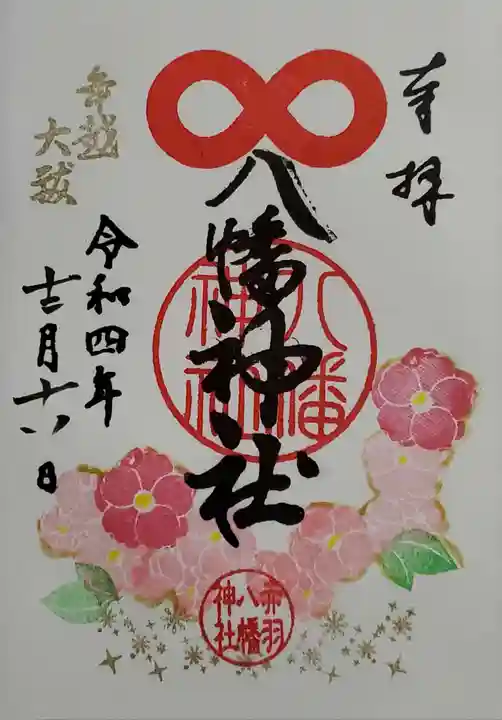 奉拝
八幡神社
八幡神社
赤羽
八幡
神社
年越
大祓
令和四年
十二月十八日